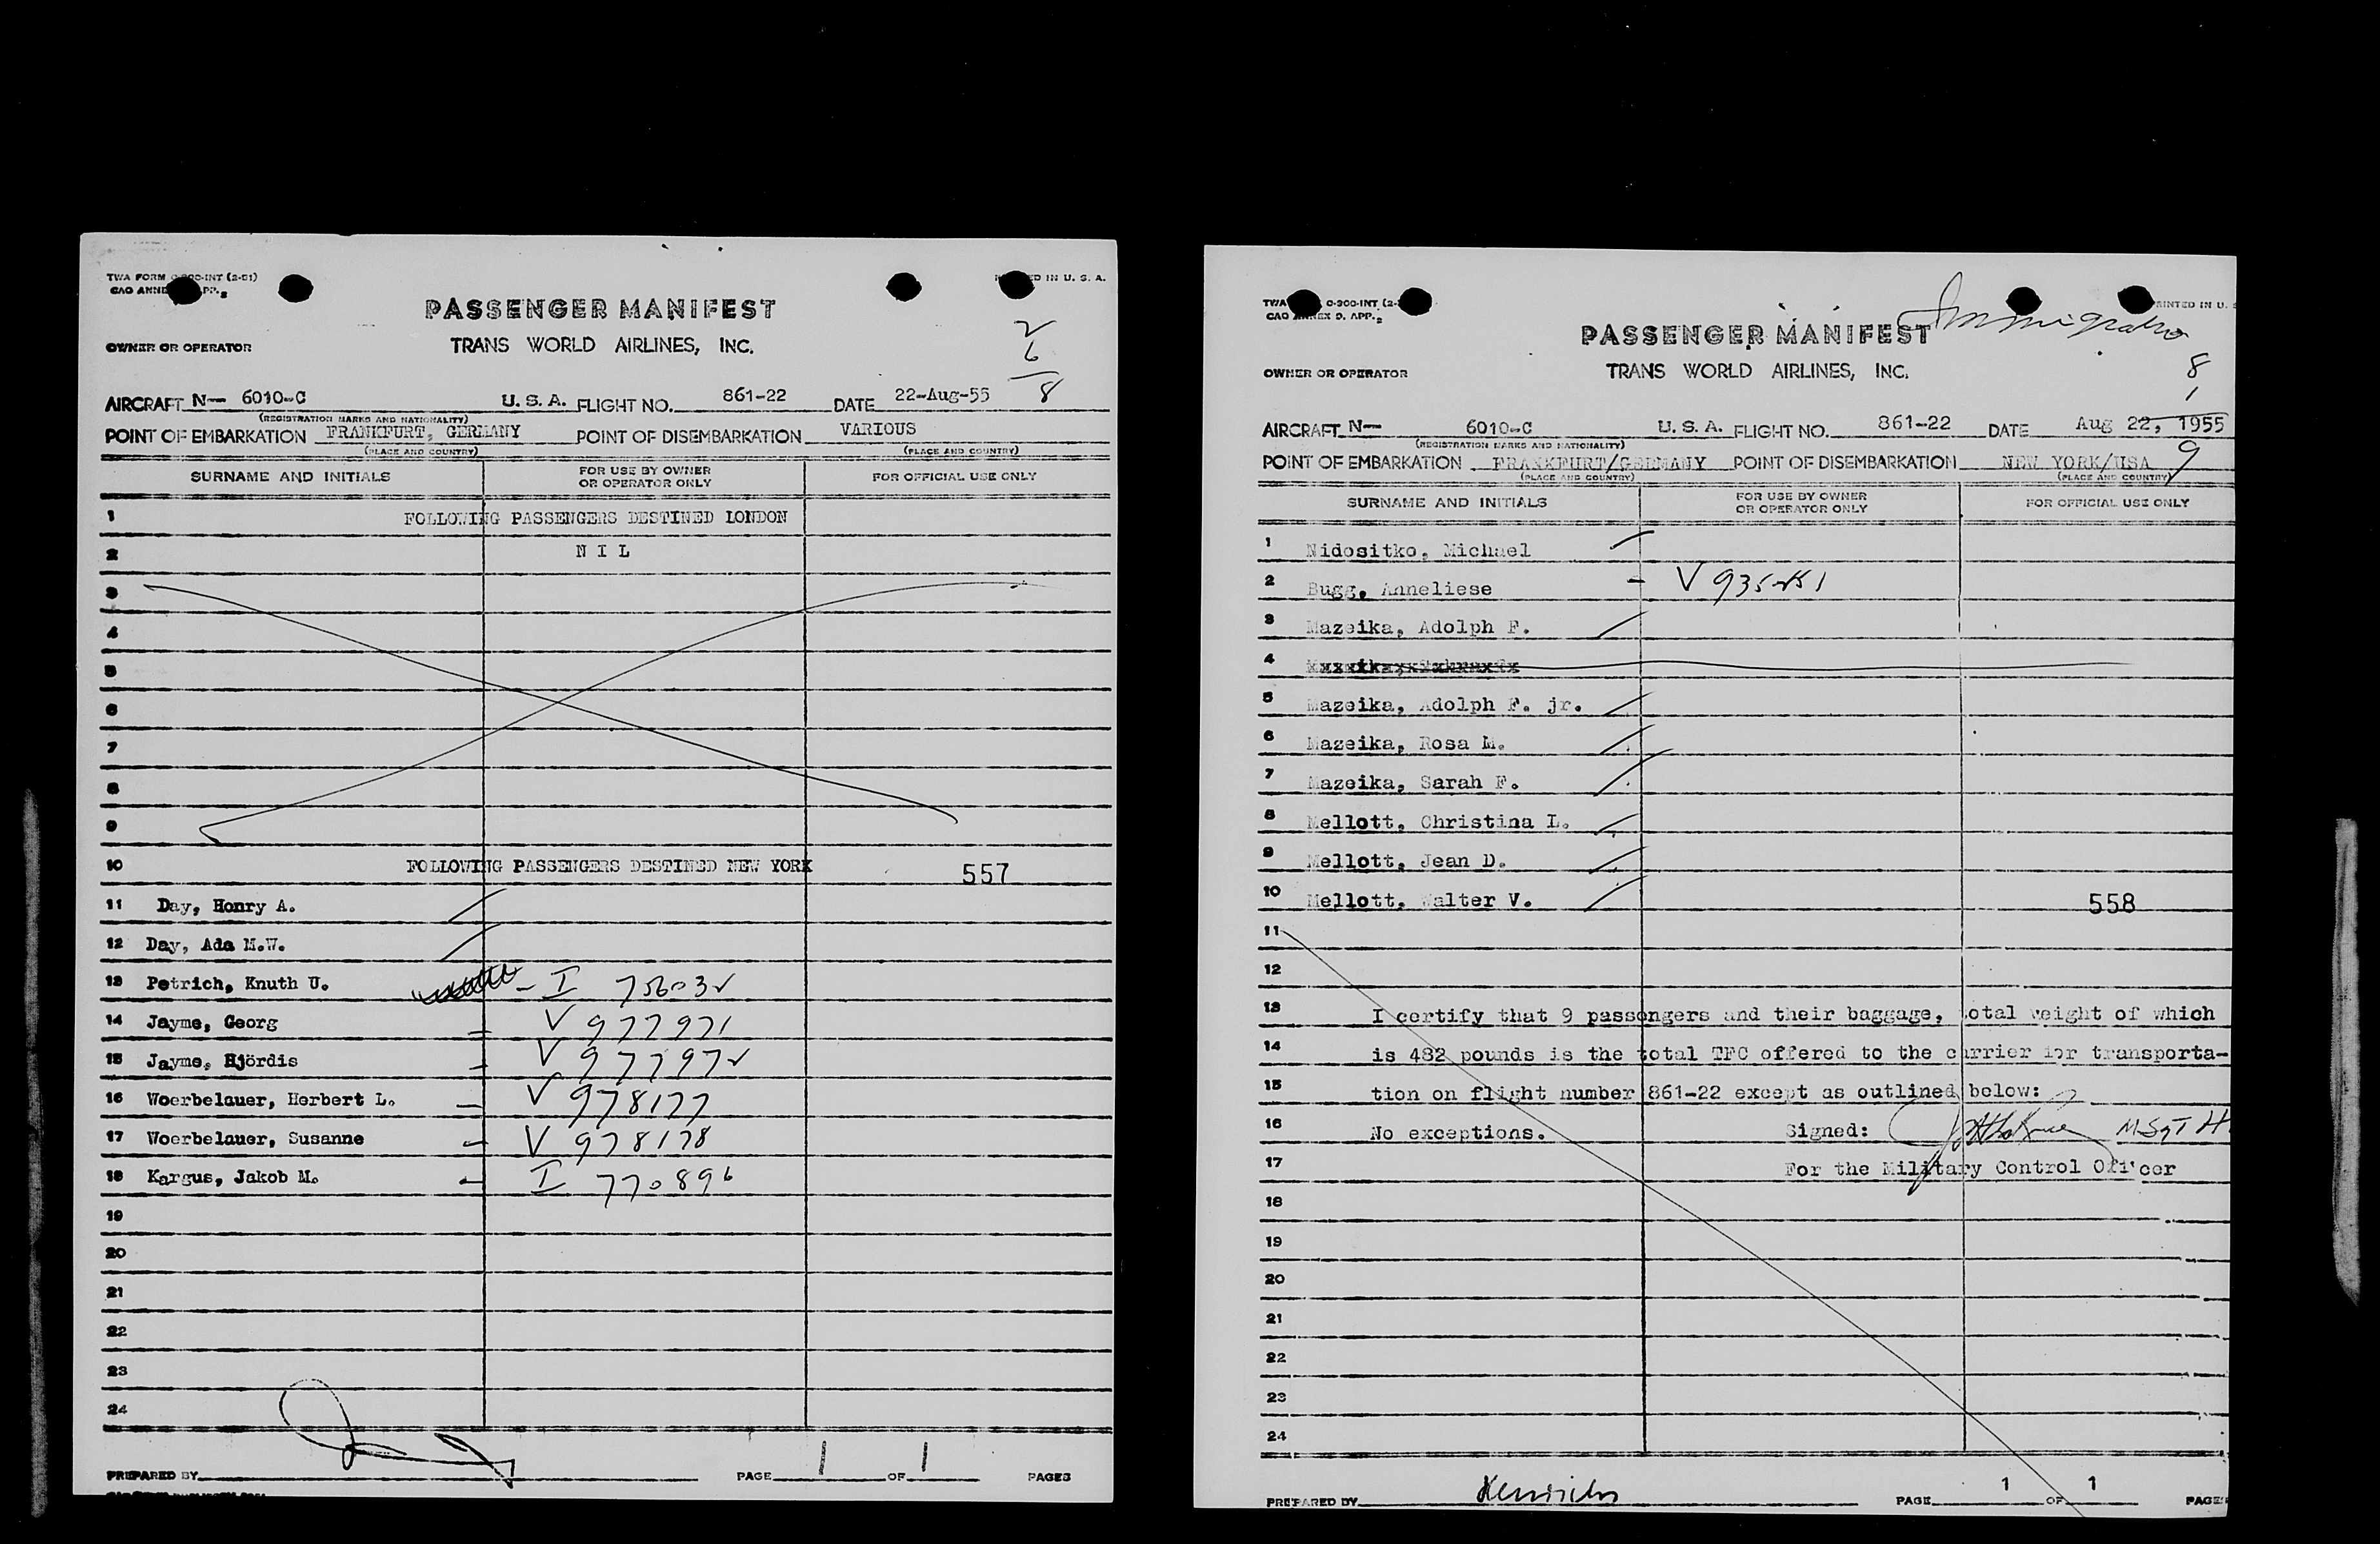 TWA FORM
CAO ANNE APP.
ED IN U. S. A.
PASSENGER MANIFEST
OWNER OR OPERATOR
TRANS WORLD AIRLINES, INC.
2
6
8
AIRCRAFT N— 6010-C U. S. A. FLIGHT NO. 861-22 DATE 22-Aug-55
(REGISTRATION MARKS AND NATIONALITY)
POINT OF EMBARKATION FRANKFURT, GERMANY POINT OF DISEMBARKATION VARIOUS
(PLACE AND COUNTRY) (PLACE AND COUNTRY)
SURNAME AND INITIALS FOR USE BY OWNER OR OPERATOR ONLY FOR OFFICIAL USE ONLY
1 FOLLOWING PASSENGERS DESTINED LONDON
2 N I L
3
4
5
6
7
8
9
10 FOLLOWING PASSENGERS DESTINED NEW YORK 557
11 Day, Henry A.
12 Day, Ada M.W.
13 Petrich, Knuth U. - I 756032
14 Jayme, Georg - V 977971
15 Jayme, Hjördis - V 977972
16 Woerbelauer, Herbert L. - V 978177
17 Woerbelauer, Susanne - V 978178
18 Kargus, Jakob M. - I 770896
19
20
21
22
23
24
PREPARED BY PAGE 1 OF 1 PAGES
TWA C-300-INT (2-
CAO ANNEX 9. APP.
RINTED IN U. S
Immigration
PASSENGER MANIFEST
OWNER OR OPERATOR
TRANS WORLD AIRLINES, INC.
8
1
9
AIRCRAFT N— 6010-C U. S. A. FLIGHT NO. 861-22 DATE Aug 22, 1955
(REGISTRATION MARKS AND NATIONALITY)
POINT OF EMBARKATION FRANKFURT/GERMANY POINT OF DISEMBARKATION NEW YORK/USA
(PLACE AND COUNTRY) (PLACE AND COUNTRY)
SURNAME AND INITIALS FOR USE BY OWNER OR OPERATOR ONLY FOR OFFICIAL USE ONLY
1 Nidositko, Michael
2 Bugg, Anneliese - V
3 Mazeika, Adolph F.
4
5 Mazeika, Adolph F. jr.
6 Mazeika, Rosa M.
7 Mazeika, Sarah F.
8 Mellott, Christina L.
9 Mellott, Jean D.
10 Mellott, Walter V. 558
11
12
13 I certify that 9 passengers and their baggage, total weight of which
14 is 482 pounds is the total TFC offered to the carrier for transporta-
15 tion on flight number 861-22 except as outlined below:
16 No exceptions. Signed: M Sgt
17 For the Military Control Officer
18
19
20
21
22
23
24
PREPARED BY PAGE 1 OF 1 PAGES